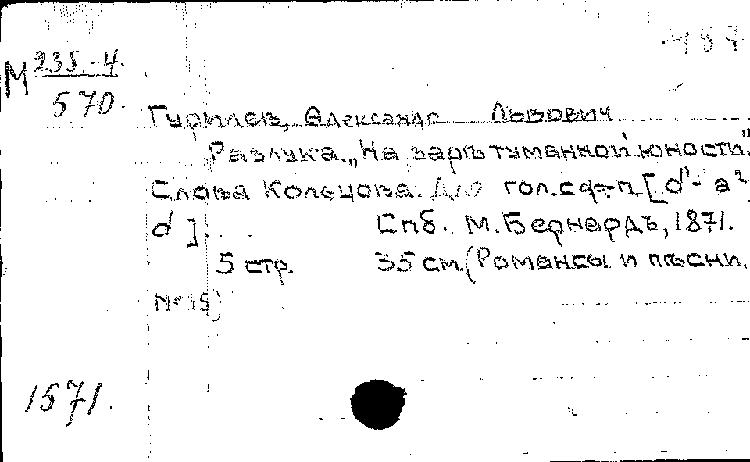 487
М 235-4
570
Гурилев, Александр Львович
Разлука. „На заръ туманной юности".
Слова Кольцова. Для гол. с ф-п. [d'- a²
d']. Спб. М. Бернардъ, 1871.
5 стр. 35 см. (Романсы и пѣсни.
№ 15)
1571.